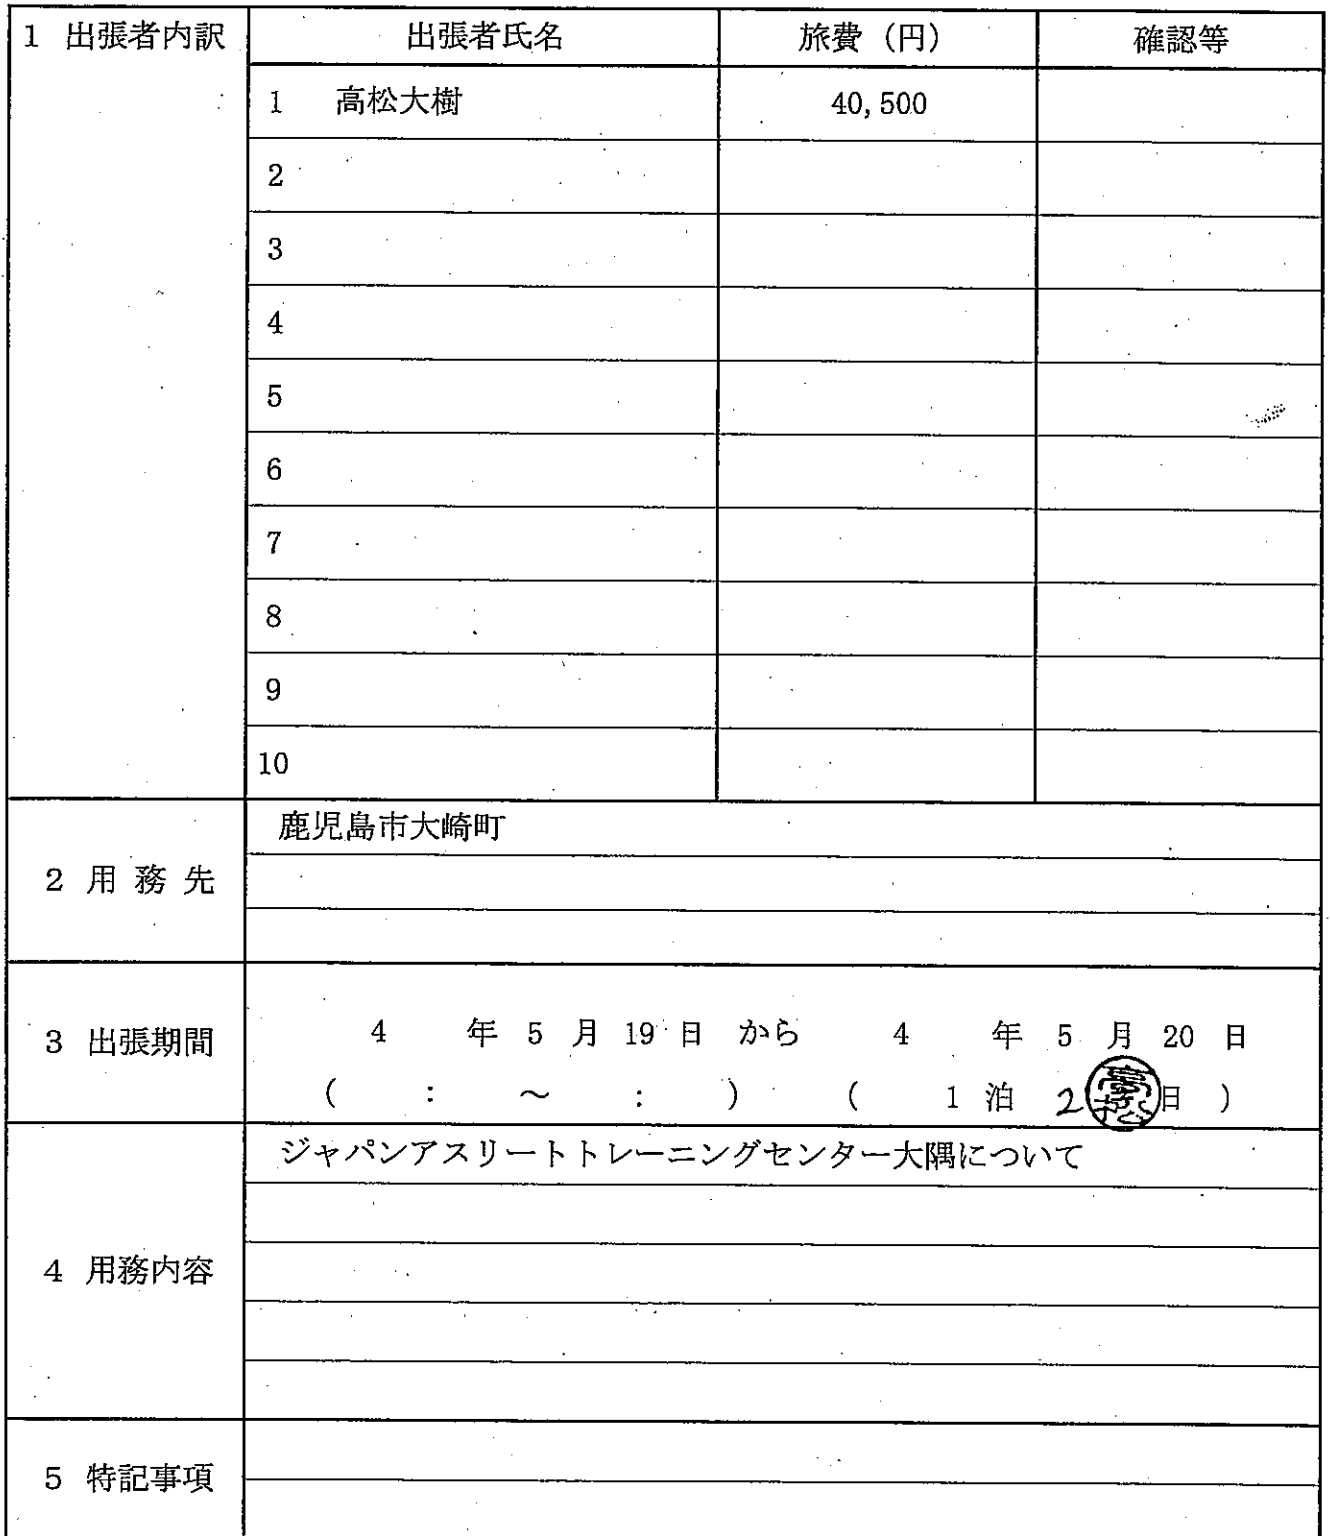 1 出張者内訳 出張者氏名 旅費（円） 確認等
1 高松大樹 40,500
2
3
4
5
6
7
8
9
10
2 用務先 鹿児島市大崎町
3 出張期間 4 年 5 月 19 日 から 4 年 5 月 20 日
( : ～ : ) ( 1 泊 2 高松 日 )
4 用務内容 ジャパンアスリートトレーニングセンター大隅について
5 特記事項